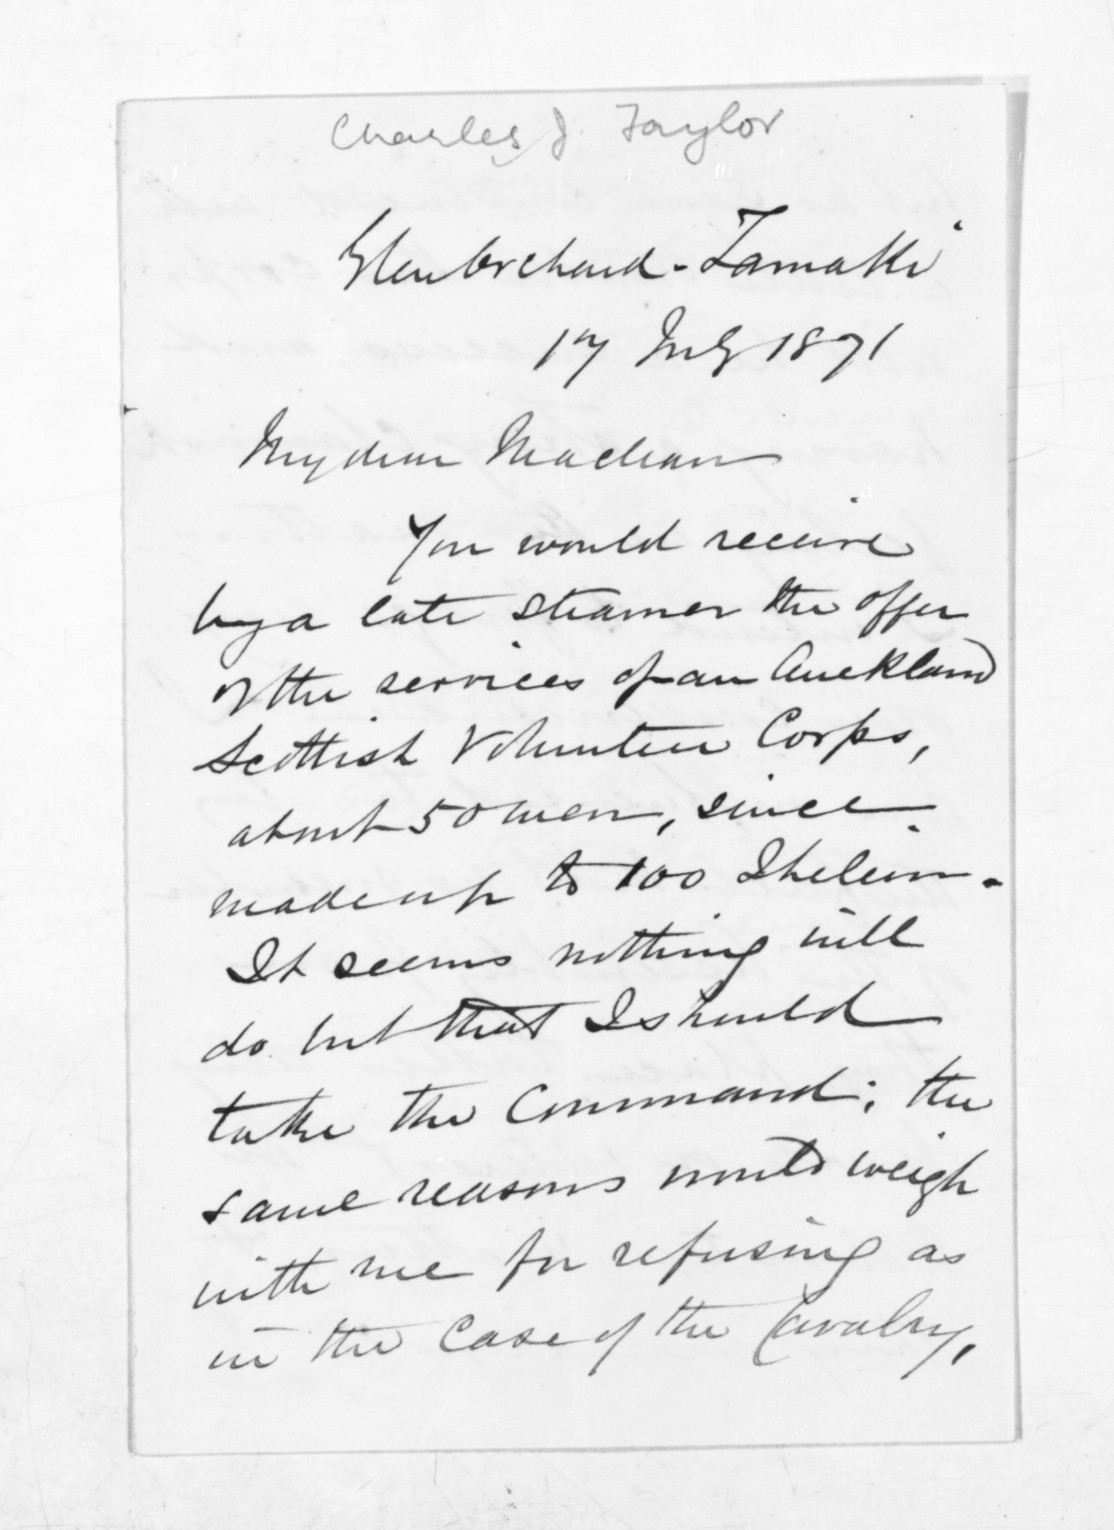 Charles J. Taylor
Glenorchard - Tamaki
17 July 1871
My dear Maclean
You would receive
by a late steamer the offer
of the services of an Auckland
Scottish Volunteer Corps,
about 50 men, since
made up to 100 I believe.
It seems nothing will
do but that I should
take the Command; the
same reasons would weigh
with me for refusing as
in the case of the Cavalry,